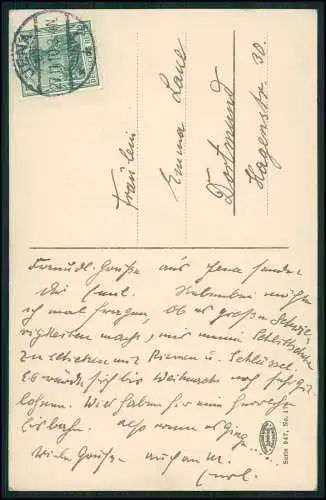 JENA
Fräulein
Emma Laue
Dortmund
Hagenstr. 30.
Freundl. Grüße aus Jena sendet
Dir Emil. Nebenbei möchte
ich mal fragen, ob es große Schwie
rigkeiten macht, mir meine Schlittschuhe
zu schicken mit Riemen u. Schlüssel.
Es würde sich bis Weihnacht noch sehr gut
lohnen. Wir haben hier eine herrliche
Eisbahn. Also wenn es ginge.....
Viele Grüße auch an M.
Emil.
Serie 947, No. 17